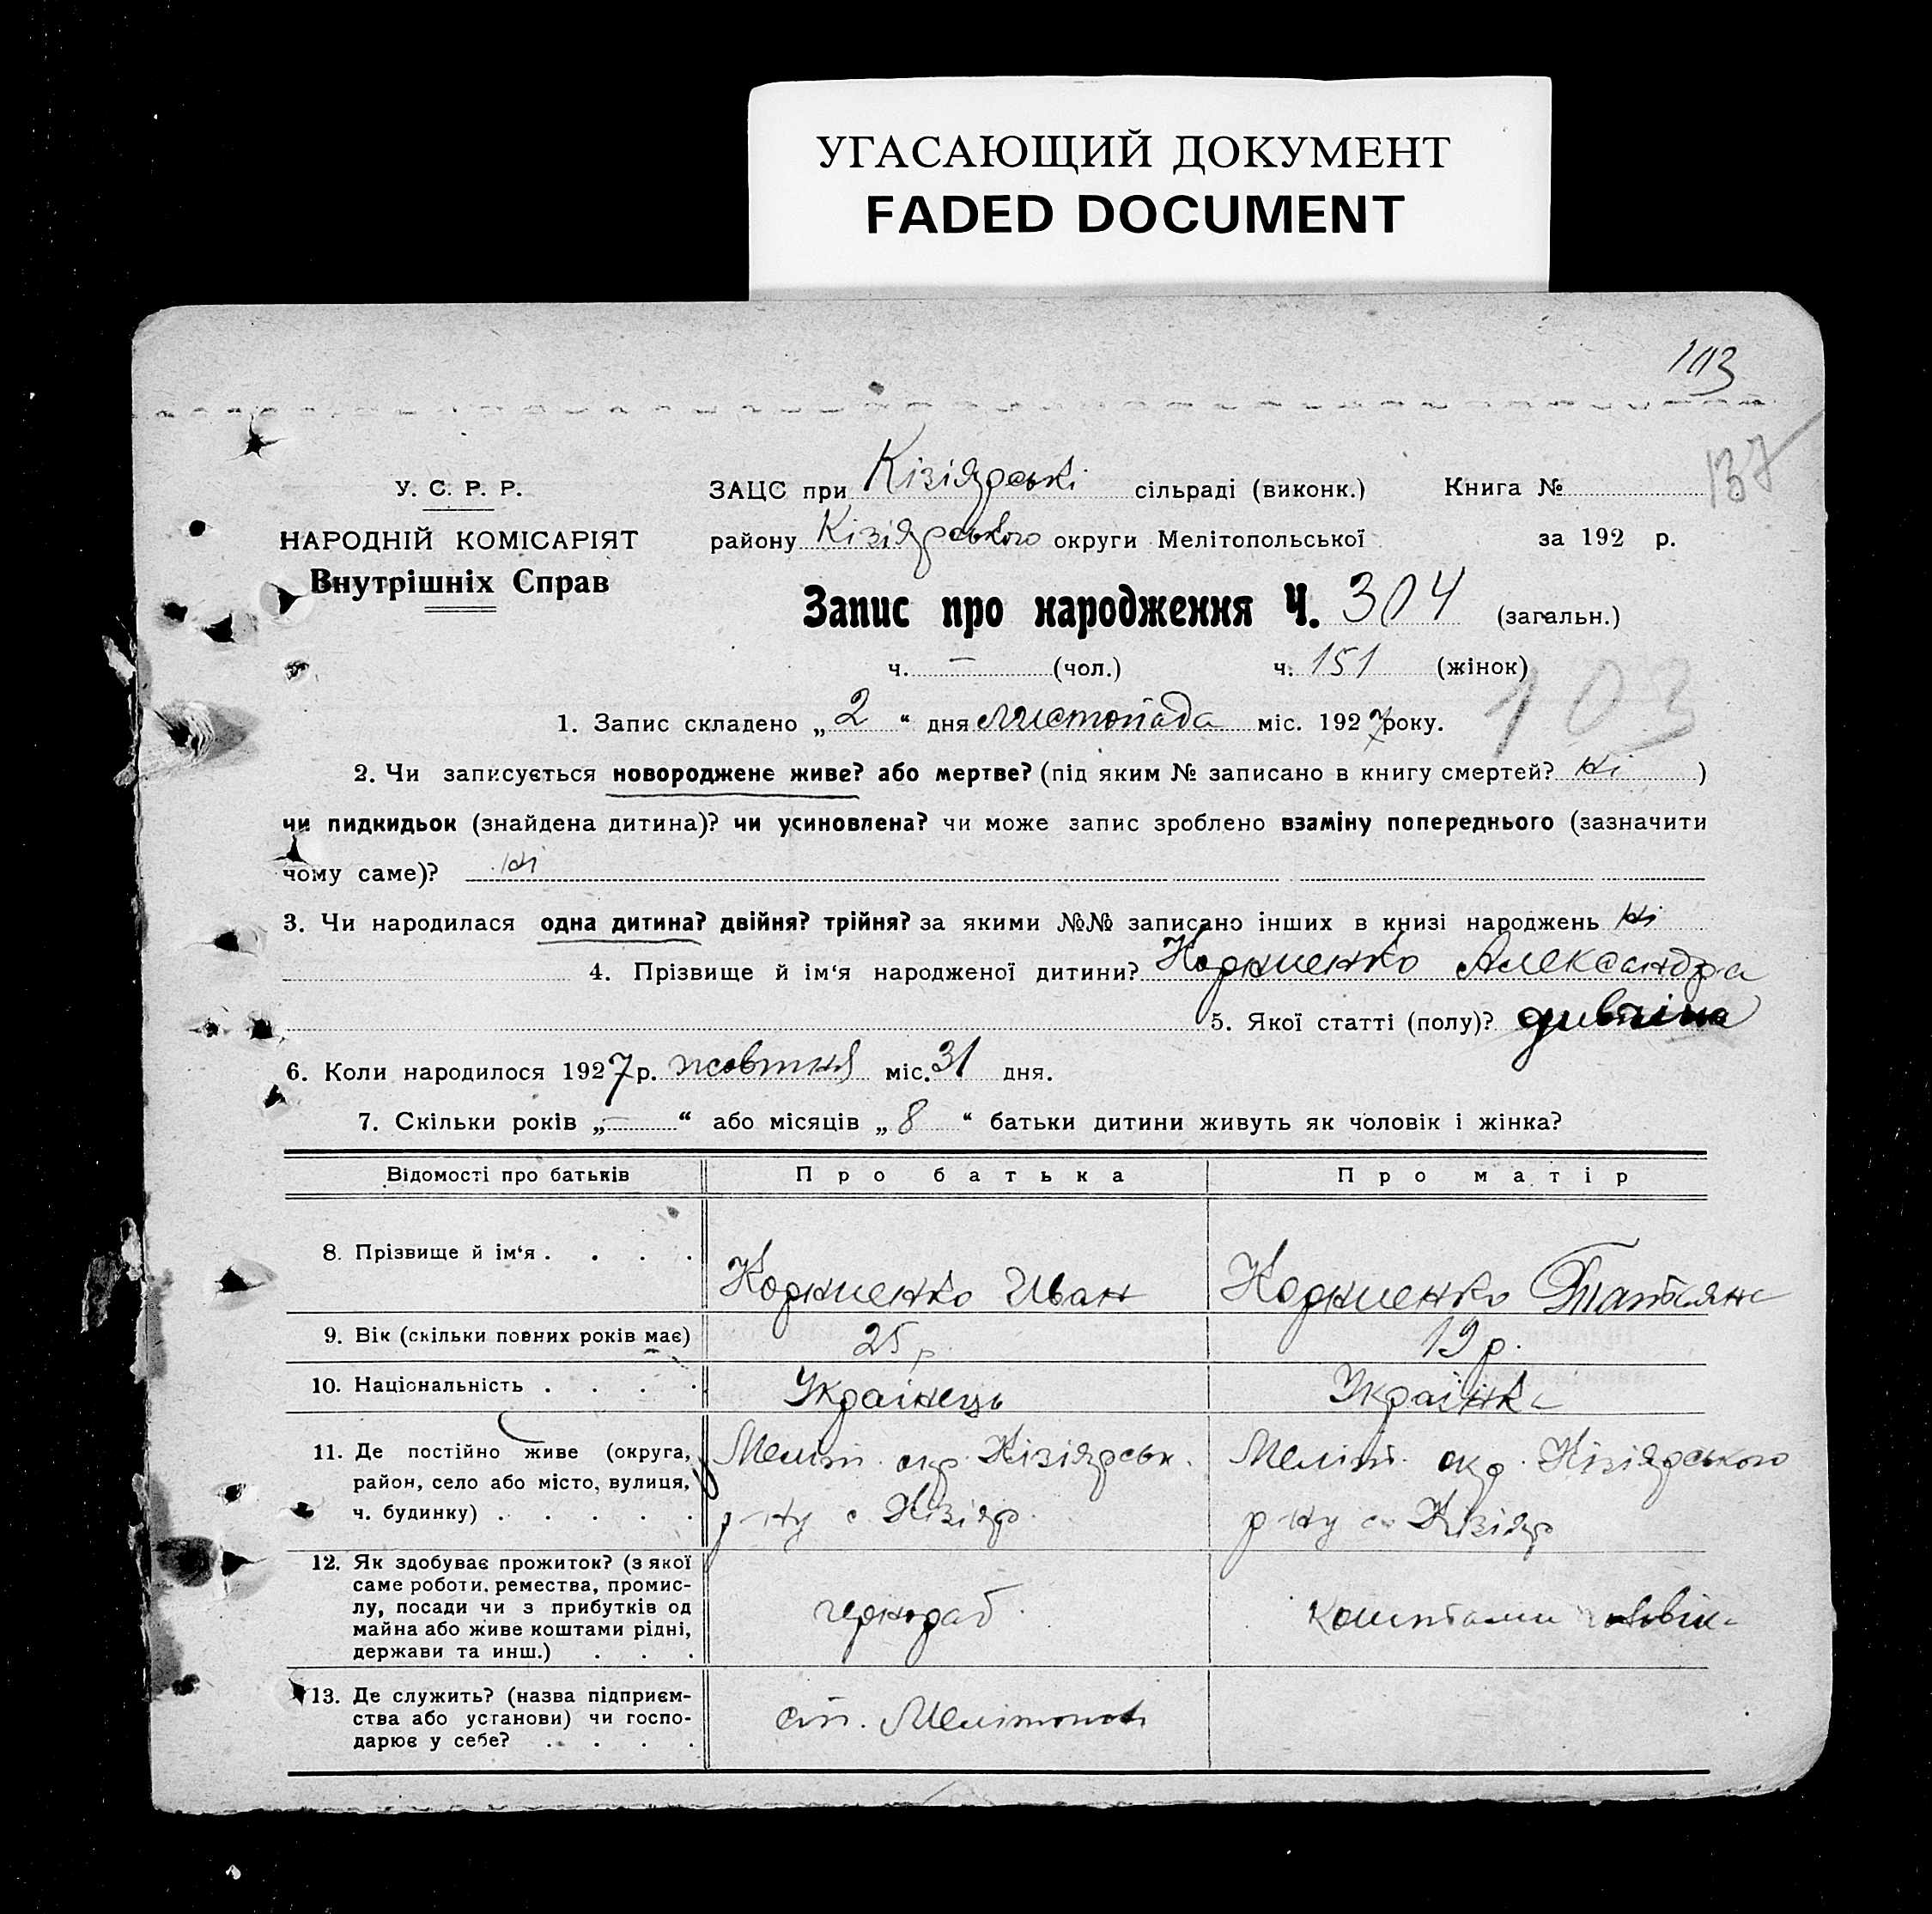 УГАСАЮЩИЙ ДОКУМЕНТ
FADED DOCUMENT
103
137
У. С. Р. Р.
НАРОДНІЙ КОМІСАРІЯТ
Внутрішніх Справ
ЗАЦС при Кізіярські сільраді (виконк.) Книга №
району Кізіярського округи Мелітопольської за 192 р.
Запис про народження Ч. 304 (загальн.)
ч. — (чол.) ч. 151 (жінок)
103
1. Запис складено „ 2 “ дня листопада міс. 1927 року.
2. Чи записується новороджене живе? або мертве? (під яким № записано в книгу смертей? ні )
чи пидкидьок (знайдена дитина)? чи усиновлена? чи може запис зроблено взаміну попереднього (зазначити
чому саме)? ні
3. Чи народилася одна дитина? двійня? трійня? за якими №№ записано інших в книзі народжень ні
4. Прізвище й ім‘я народженої дитини? Корниенко Александра
5. Якої статті (полу)? дивчіна
6. Коли народилося 1927 р. жовтня міс. 31 дня.
7. Скільки років „ — “ або місяців „ 8 “ батьки дитини живуть як чоловік і жінка?
Відомості про батьків Про батька Про матір
8. Прізвище й ім‘я . . . . Корниенко Иван Корниенко Татьяна
9. Вік (скільки повних років має) 25 р 19 р.
10. Національність . . . . Українець Українка
11. Де постійно живе (округа, Меліт. окр. Кізіярськ. Меліт. окр. Кізіярського
район, село або місто, вулиця,
ч. будинку) . . . . . р-ну с. Кізіяр р-ну с. Кізіяр
12. Як здобуває прожиток? (з якої
саме роботи, ремества, промис-
лу, посади чи з прибутків од чернораб. коштами
майна або живе коштами рідні,
держави та инш.) . . .
13. Де служить? (назва підприєм-
ства або установи) чи госпо- ст. Мелітополь
дарює у себе? . . . .